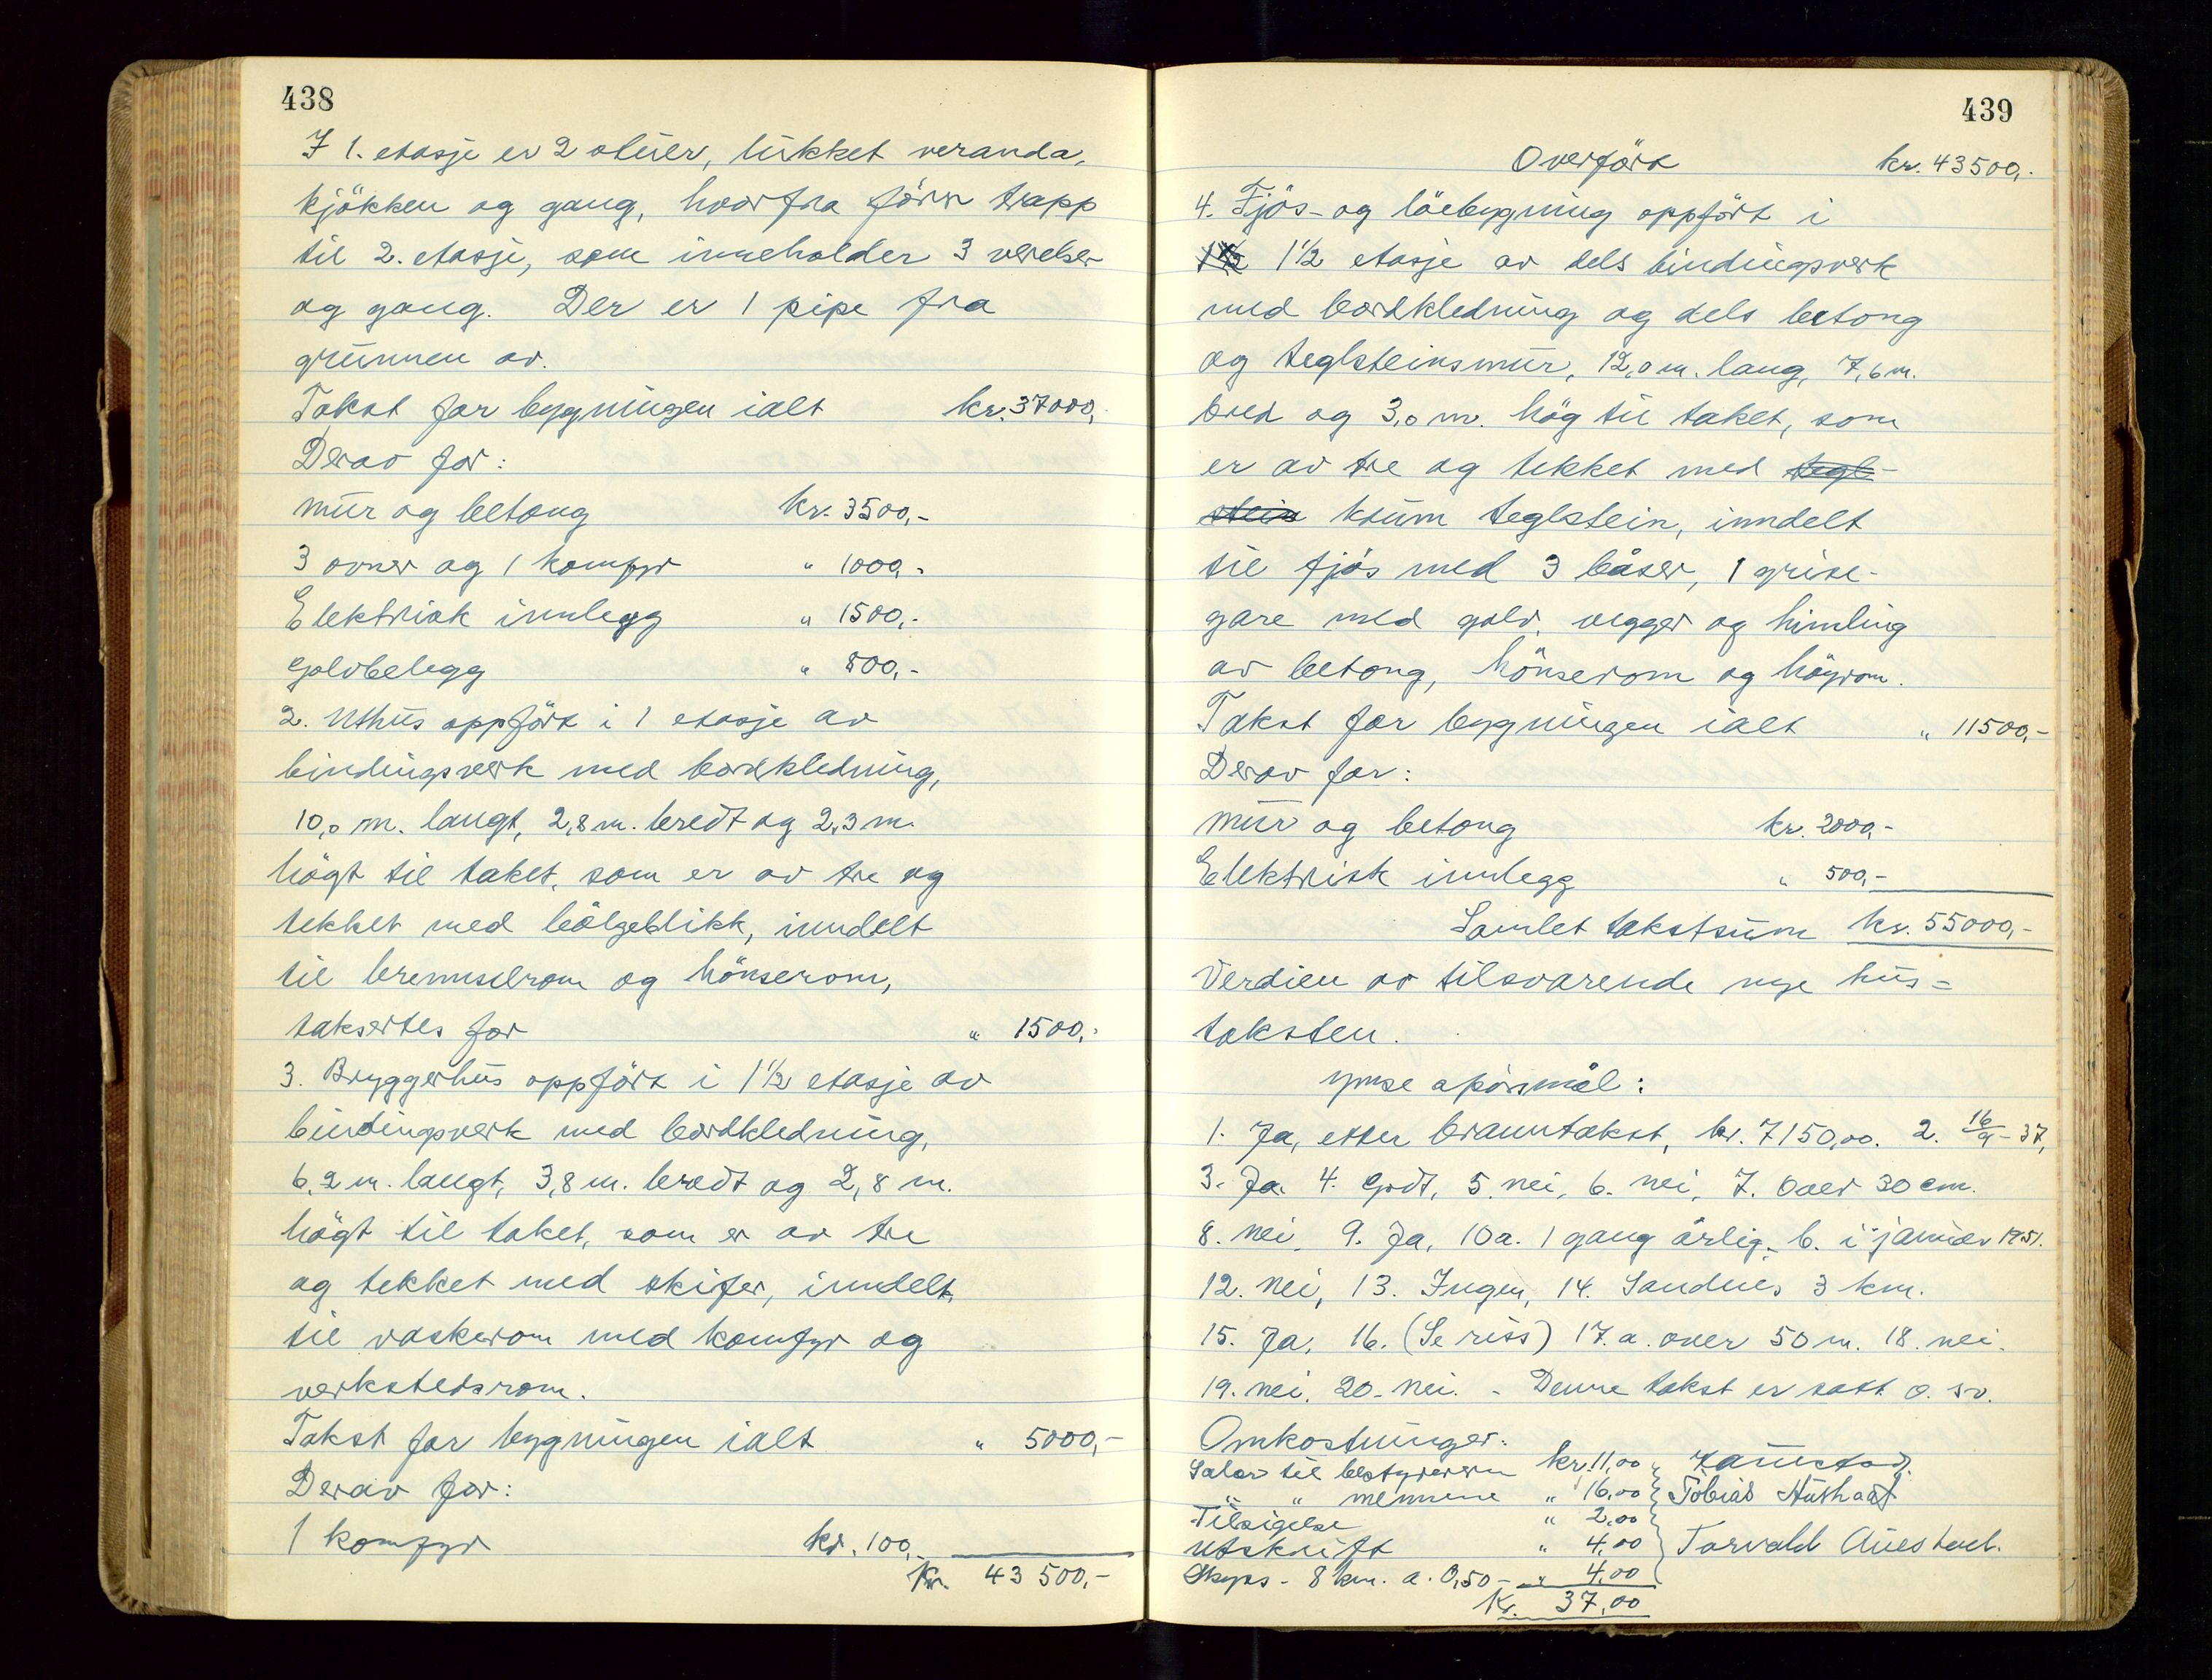 438
I 1. etasje er 2 stuer, lukket veranda,
kjökken og gang, hvorfra förer trapp
til 2. etasje, som inneholder 3 verelser
og gang. Der er 1 pipe fra
grunnen av.
Takst for bygningen ialt kr. 37000,-
Derav for:
mur og betong kr. 3500,-
3 ovner og 1 komfyr " 1000,-
Elektrisk innlegg " 1500,-
golvbelegg " 800,-
2. Uthus oppfört i 1 etasje av
bindingsverk med bordkledning,
10,0 m. langt, 2,8 m. bredt og 2,3 m.
högt til taket, som er av tre og
tekket med bölgeblikk, inndelt
til brennselrom og hönserom,
taksertes for " 1500,-
3. Bryggerhus oppfört i 1½ etasje av
bindingsverk med bordkledning,
6,2 m. langt, 3,8 m. bredt og 2,8 m.
högt til taket, som er av tre
og tekket med skifer, inndelt
til vaskerom med komfyr og
verkstedsrom.
Takst for bygningen ialt " 5000,-
Derav for:
1 komfyr kr. 100,-
Kr. 43 500,-
439
Overfört kr. 43500,-
4. Fjös- og löebygning oppfört i
1½ 1½ etasje av dels bindingsverk
med bordkledning og dels betong
og teglsteinsmur, 12,0 m. lang, 7,6 m.
bred og 3,0 m. hög til taket, som
er av tre og tekket med tegl-
stein krum teglstein, inndelt
til fjös med 3 båser, 1 grise-
gare med golv, vegger og himling
av betong, hönserom og höyrom.
Takst for bygningen ialt " 11500,-
Derav for:
mur og betong kr. 2000,-
Elektrisk innlegg " 500,-
Samlet takstsum kr. 55000,-
Verdien av tilsvarende nye hus =
taksten.
Ymse spörsmål:
1. Ja, etter branntakst, kr. 7150,00. 2. 16/9-37,
3. Ja. 4. Godt, 5. nei, 6. nei, 7. Over 30 cm.
8. nei, 9. Ja, 10a. 1 gang årlig, b. i januar 1951.
12. nei, 13. Ingen, 14. Sandnes 3 km.
15. Ja, 16. (Se riss) 17. a. over 50 m. 18. nei.
19. nei, 20. nei. - Denne takst er satt o. sv.
Omkostninger:
Salær til bestyreren kr. 11,00
" " mennene " 16,00 Tobias
Tilsigelse " 2,00
Utskrift " 4,00 Torvald Auestad.
Skyss - 8 km. a. 0,50 - " 4,00
Kr. 37,00